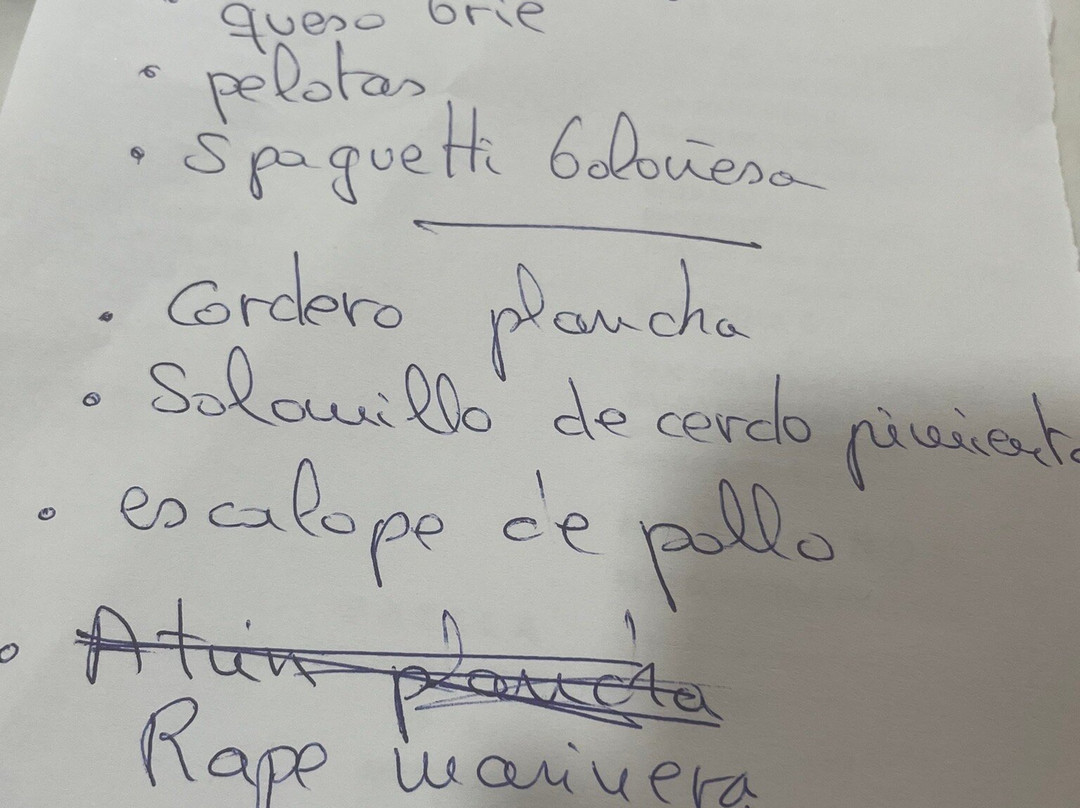 queso brie
• pelotas
• Spaguetti boloñesa
• Cordero plancha
• Solomillo de cerdo pimienta
• escalope de pollo
• Atún plancha
Rape marinera